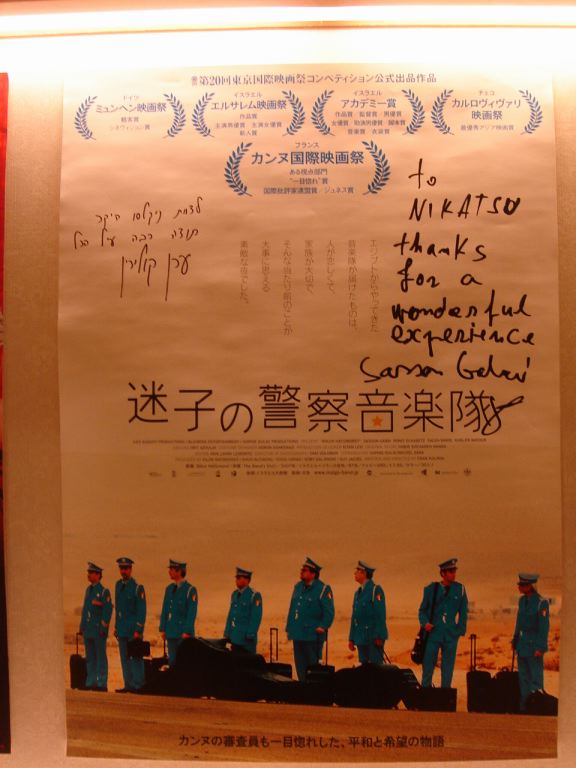 第20回東京国際映画祭コンペティション公式出品作品
ドイツ
ミュンヘン映画祭
観客賞
イスラエル
エルサレム映画祭
作品賞
主演男優賞 主演女優賞
新人賞
イスラエル
アカデミー賞
作品賞 監督賞 男優賞
女優賞 助演男優賞 脚本賞
音楽賞 衣装賞
チェコ
カルロヴィヴァリ
映画祭
最優秀アジア映画賞
フランス
カンヌ国際映画祭
ある視点部門
"一目惚れ"賞
国際批評家連盟賞/ジュネス賞
to
NIKATSU
thanks
for a
wonderful
experience
Sasson Gabai
תודה רבה על הכל
ערן קולירין
エジプトからやってきた
音楽隊が届けたものは、
人が恋しくて、
家族が大切で、
そんな当たり前のことが
大事に思える
素敵な夜でした。
迷子の警察音楽隊
カンヌの審査員も一目惚れした、平和と希望の物語